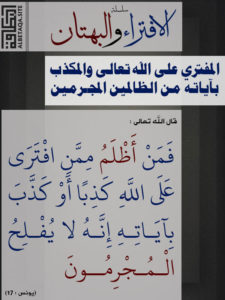 سلسلة
الافتراء والبهتان
البطاقة
ALBETAQA.SITE
المفتري على الله تعالى والمكذب
بآياته من الظالمين المجرمين
قال الله تعالى :
فَمَنْ أَظْلَمُ مِمَّنِ افْتَرَى
عَلَى اللَّهِ كَذِبًا أَوْ كَذَّبَ
بِآيَاتِهِ إِنَّهُ لَا يُفْلِحُ
الْمُجْرِمُونَ
(يونس : 17)